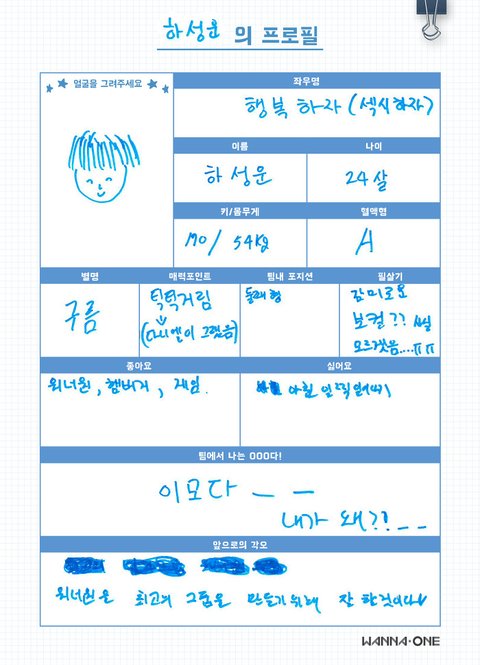 하성운 의 프로필
얼굴을 그려주세요
좌우명
행복하자 (섹시하자)
이름
나이
하성운
24살
키/몸무게
혈액형
170/ 54kg
A
별명
매력포인트
팀내 포지션
필살기
구름
틱틱거림
(다니엘이 그랬음)
둘째형
감미로운
보컬??
모르겠음....ㅠㅠ
좋아요
싫어요
워너원, 햄버거, 게임.
아침 일찍 일어나기
팀에서 나는 OOO다!
이모다 ㅡ ㅡ
내가 왜?!ㅡㅡ
앞으로의 각오
워너원은 최고의 그룹을 만들기위해 잘 할것이다
WANNA·ONE